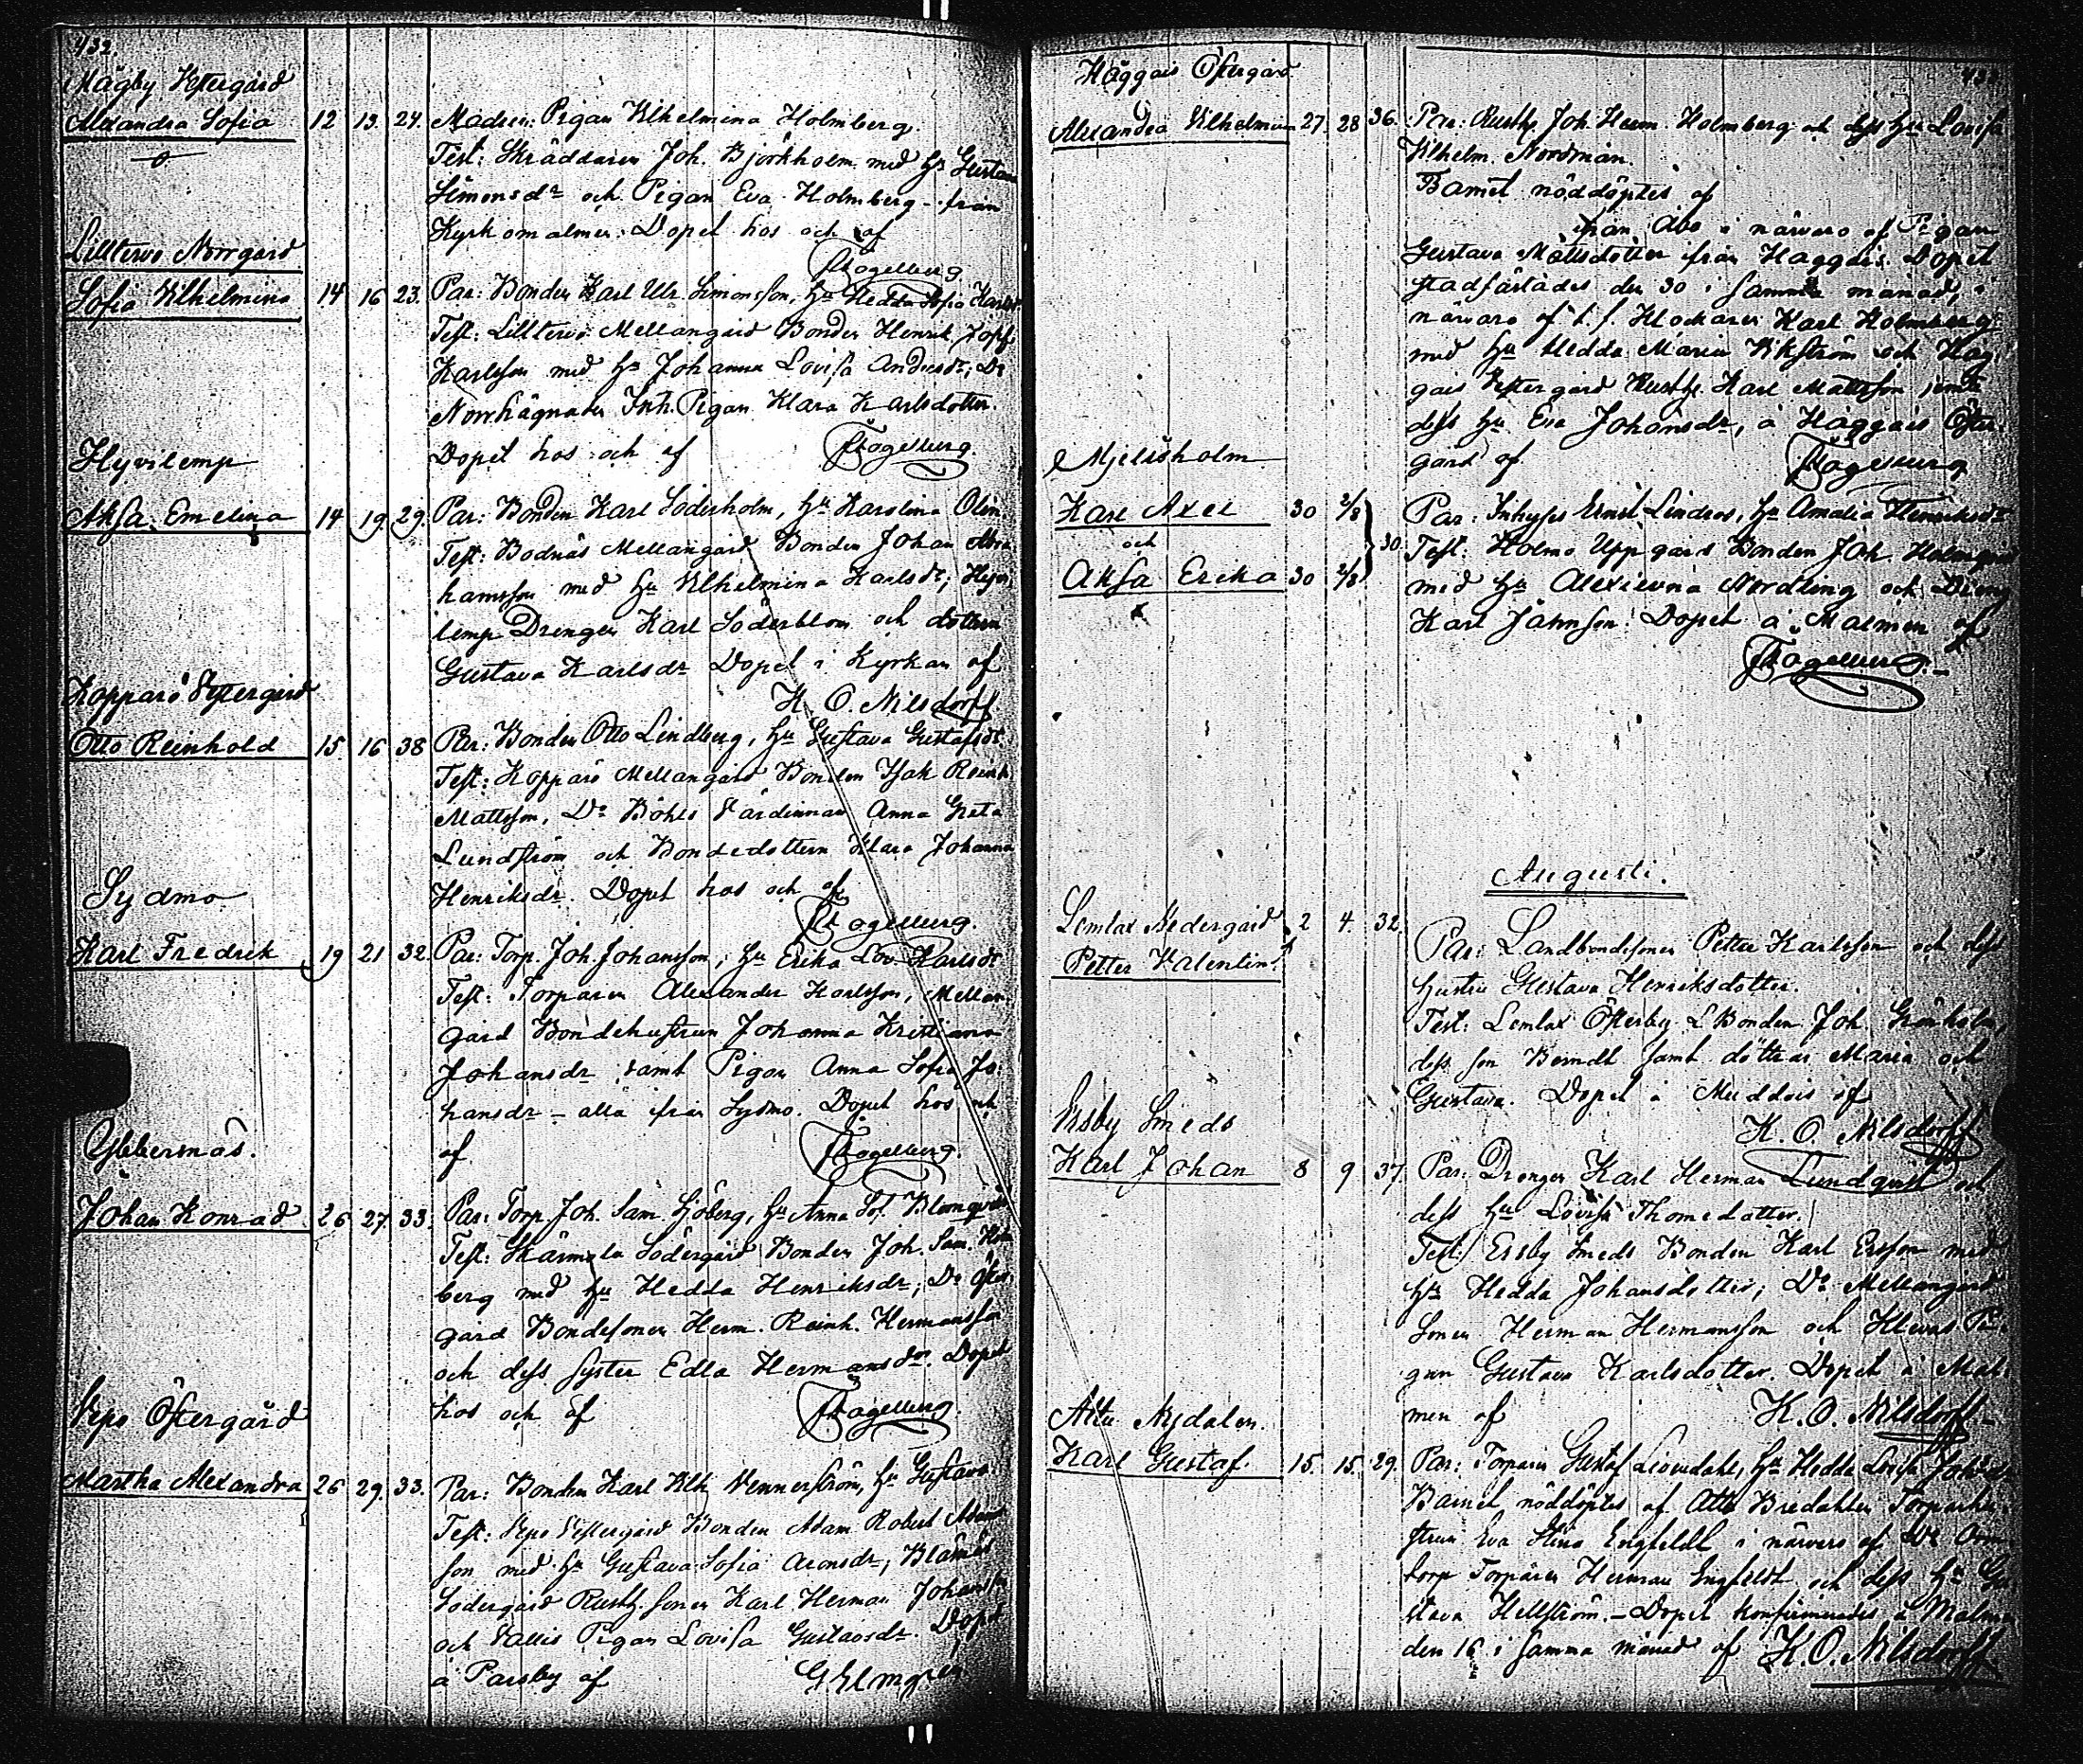 432.
Mågby Vestergård
Alexandra Sofia 12 13. 24. Modren: Pigan Vilhelmina Holmberg.
Test: Skräddaren Joh. Björkholm med hu Gustava
Simonsdr och Pigan Eva Holmberg från
Kyrkomalmen. Dopet hos och af
FrTogelberg
Lilltervo Norrgård
Sofia Vilhelmina 14 16 23. Par: Bonden Karl Ulr. Simonsson, hu Hedda Sofia
Test: Lilltervo Mellangård Bonden Henrik
Karlsson med hu Johanna Lovisa Andersdr; Do
Inh. Pigan Klara Karlsdotter.
Dopet hos och af
Hyvilemp
Aksa Emelina 14 19. 29. Par: Bonden Karl Söderholm, hu Karolina Olin
Test: Bodnäs Mellangård Bonden Johan Abra
hamsson med hu Vilhelmina Karlsdr; Hyvi
lemp Drengen Karl Söderblom och dottern
Gustava Karlsdr Dopet i Kyrkan af
K. O. Nilsdorff
Kopparö Vestergård
Otto Reinhold 15 16 38 Par: Bonden Otto Lindberg, hu Gustava Gustafsdr.
Test: Kopparö Mellangård Bonden Isak Reinh.
Mattsson, Do Böhls Värdinnan Anna Greta
Lundström och Bondedottern Klara Johanna
Henriksdr. Dopet hos och af
Sydmo
Karl Fredrik 19 21 32. Par: Torp. Joh. Johansson, hu Erika Lov. Karlsdr
Test: Torparen Alexander Karlsson, Mellan
gård Bondehustrun Johanna Kristiana
Johansdr samt Pigan Anna Sofia Jo
hansdr – alla från Sydmo. Dopet hos och
af
Ybbernäs.
Johan Konrad 26 27. 33. Par: Torp. Joh. Sam. Sjöberg, hu Anna Sof. Blomqvist
Test: Skärmola Södergård Bonden Joh. Sam. Holm
berg med hu Hedda Henriksdr; Do Öster
gård Bondesonen Herm. Reinh. Hermansson
och dess syster Edla Hermansdr. Dopet
hos och af
Vepo Östergård
Martha Alexandra 26 29. 33. Par: Bonden Karl Vilh. Vennerström, hu Gustava
Test: Vepo Vestergård Bonden Adam Robert Adams
son med hu Gustava Sofia Aronsdr; Blämäs
Södergård Rusth. sonen Karl Herman Johansson
och Vallis Pigan Lovisa Gustavsdr. Dopet
å Parsby af G Elmgren
433
Haggais Östergård
Alexandra Vilhelmina 27. 28 36. Par: Rusth. Joh. Herm. Holmberg och dess hu Lovisa
Vilhelm. Nordman.
Barnet nöddöptes af
från Åbo i närvaro af Pigan
Gustava Mattsdotter från Haggais. Dopet
stadfästades den 30 i samma månad, i
närvaro af t. f. Klockaren Karl Holmberg
med hu Hedda Maria Vikström och Hag
gais Vestergård Rusth. Karl Mattsson jemte
dess hu Eva Johansdr, å Haggais Öster
gård af
Mjelisholm
Karl Axel 30 2/8 Par: Inhyses Ernst Lindros, hu Amalia Henriksdr
och 30. Test: Holmo Uppgård Bonden Joh. Holmqvist
Aksa Erika 30 2/8 med hu Alexievna Nordling och Dreng
Karl Jähnson. Dopet å Malmen af
Augusti.
Lemlax Nedergård 2 4. 32. Par: Landbondesonen Petter Karlsson och dess
Petter Valentin. hustru Gustava Henriksdotter.
Test: Lemlax Österby L. Bonden Joh. Grönholm,
dess son Berndt samt döttrar Maria och
Gustava. Dopet å Muddais af
K. O. Nilsdorff
Ersby Smeds
Karl Johan 8 9 37. Par: Drengen Karl Herman Lundqvist och
dess hu Lovisa Thomedotter.
Test: Ersby Smeds Bonden Karl Ersson med
hu Hedda Johansdotter; Do Mellangård
Sonen Herman Hermansson och Klevas Pi
gan Gustava Karlsdotter. Dopet å Mal
men af K. O. Nilsdorff
Attu Nydalen.
Karl Gustaf. 15. 15. 29. Par: Torparen Gustaf Liondahl, hu Hedda Lovisa
Barnet nöddöptes af Attu Bredahlen Torparhu
strun Eva Stina Engfeldt i närvaro af
torp Torparen Herman Engfeldt och dess hu Gu
stava Hellström. – Dopet konfirmerades å Malmen
den 16 i samma månad af K. O. Nilsdorff